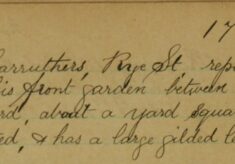 17
Carruthers, Rye St rep
is front garden between
rd, about a yard squa
ed, & has a large gilded le